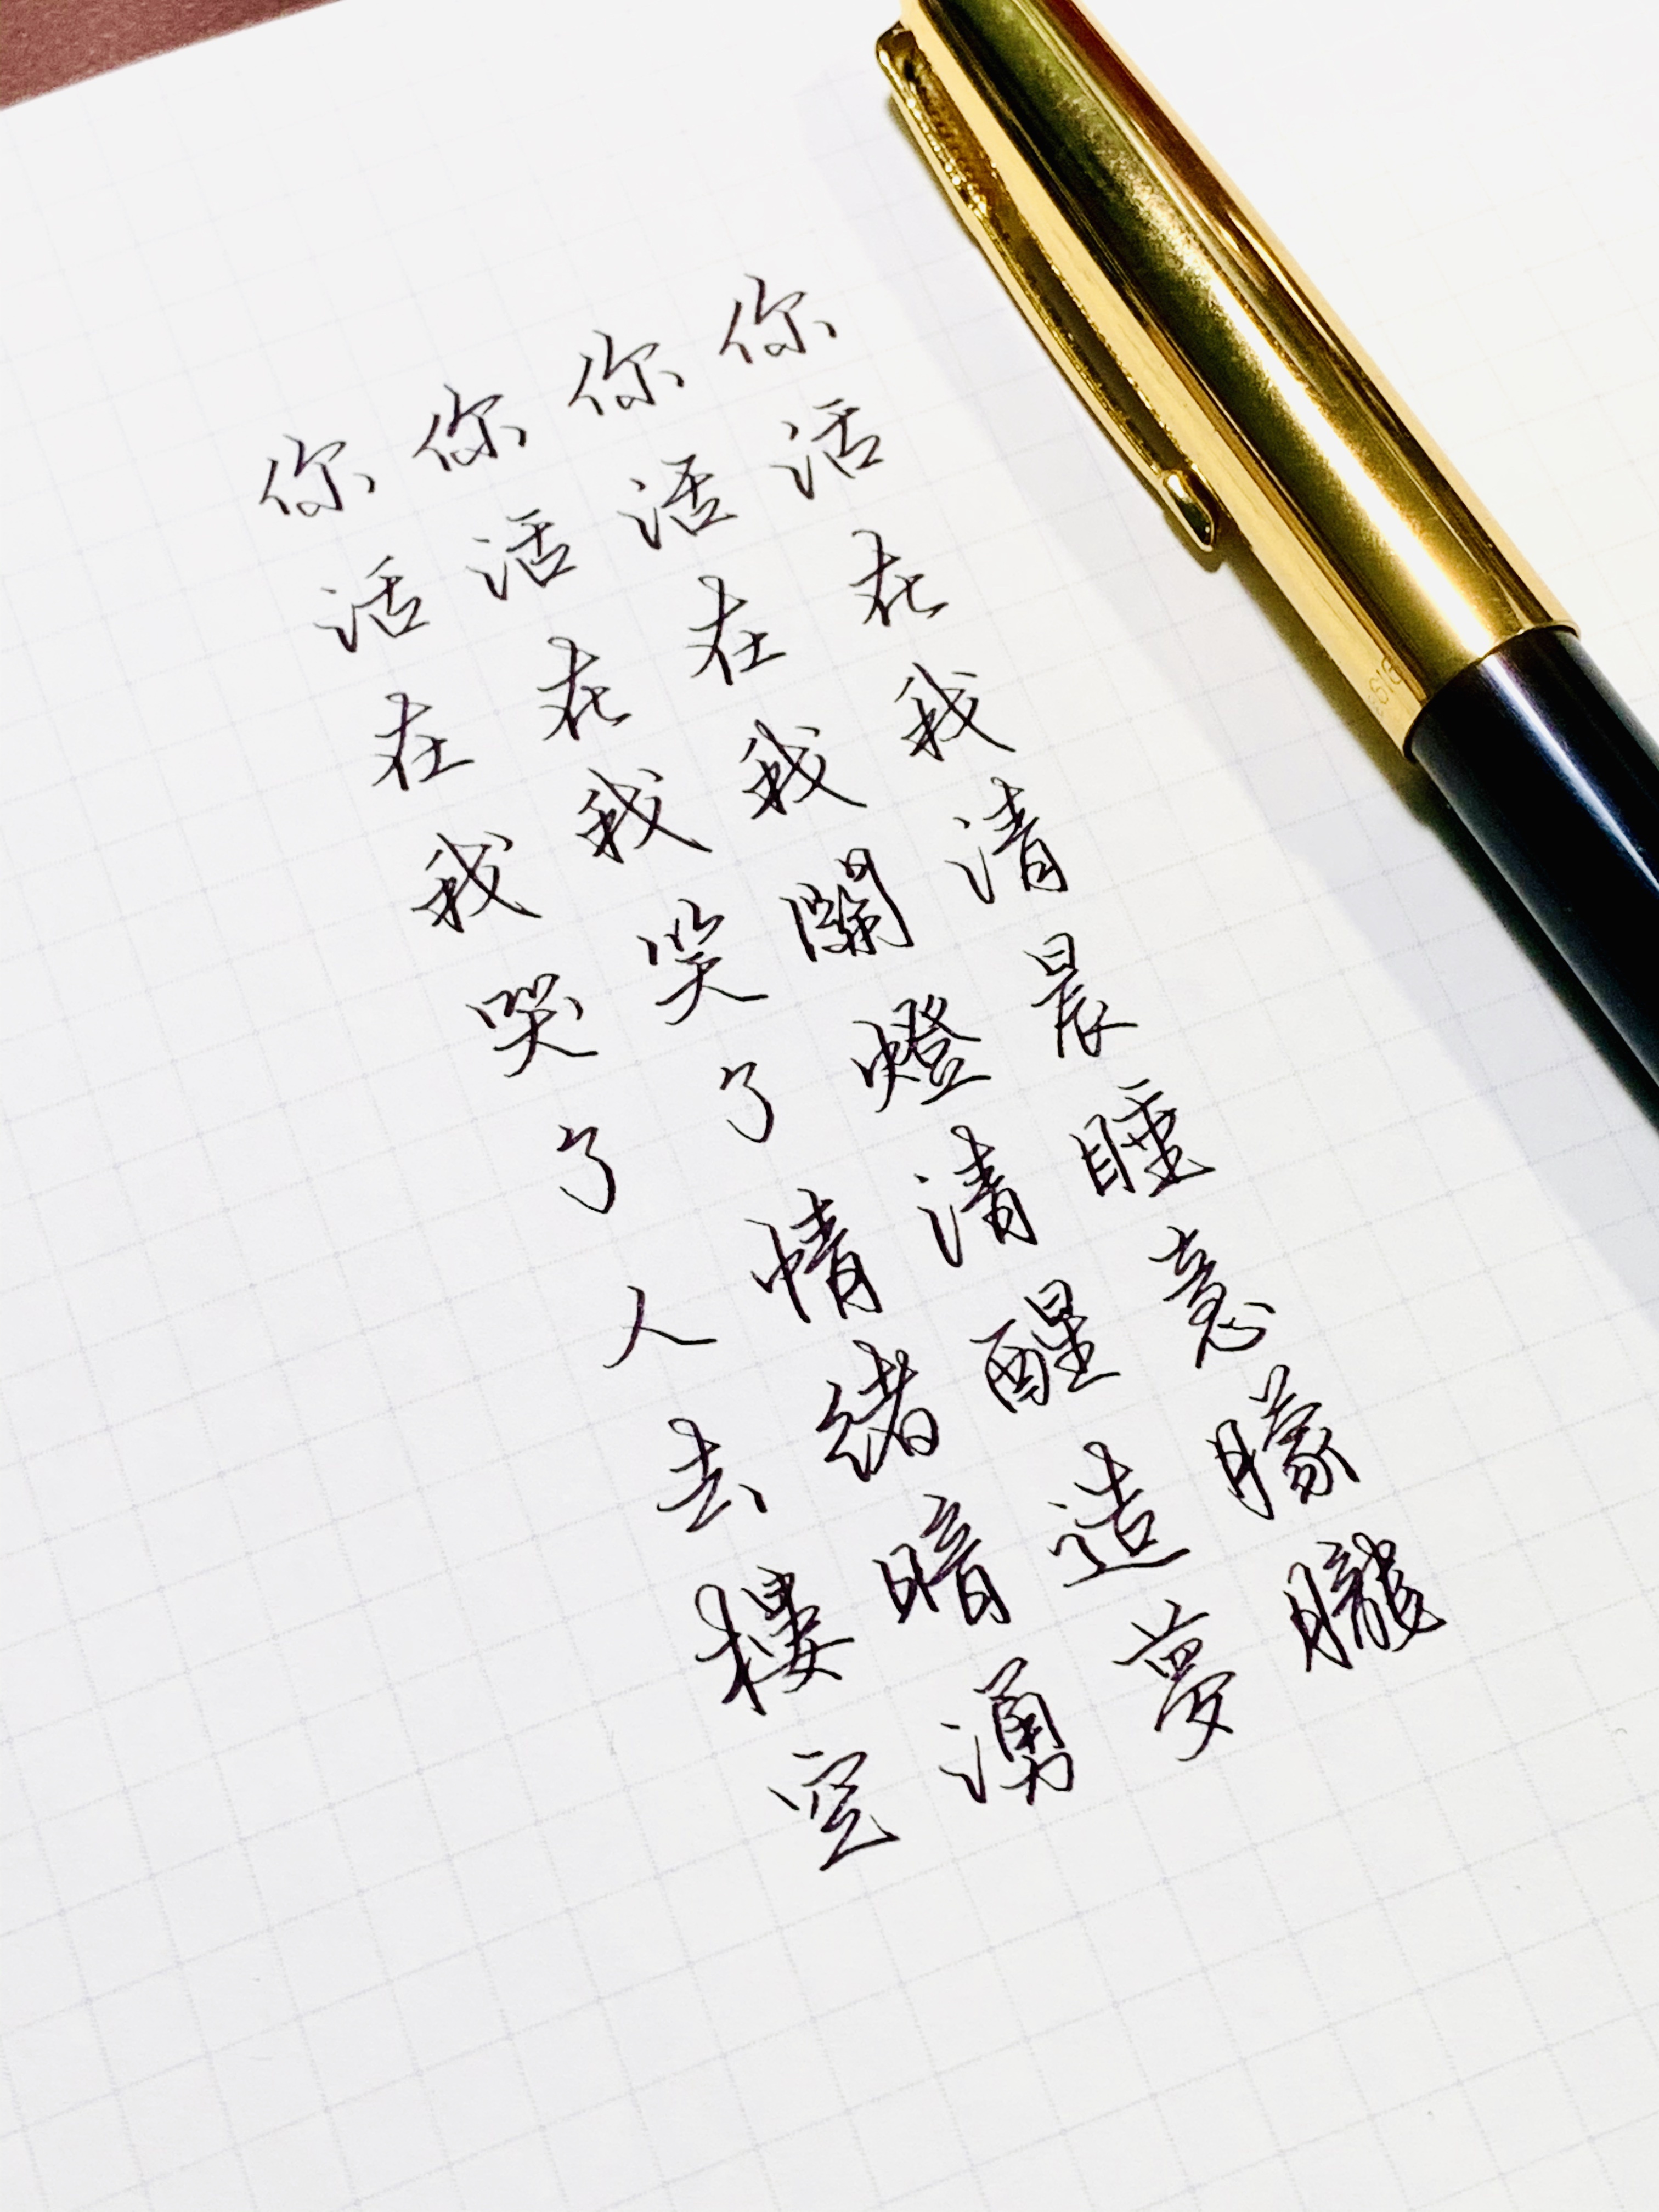 你活在我清晨睡意朦朧
你活在我關燈清醒造夢
你活在我笑了情緒暗湧
你活在我哭了人去樓空